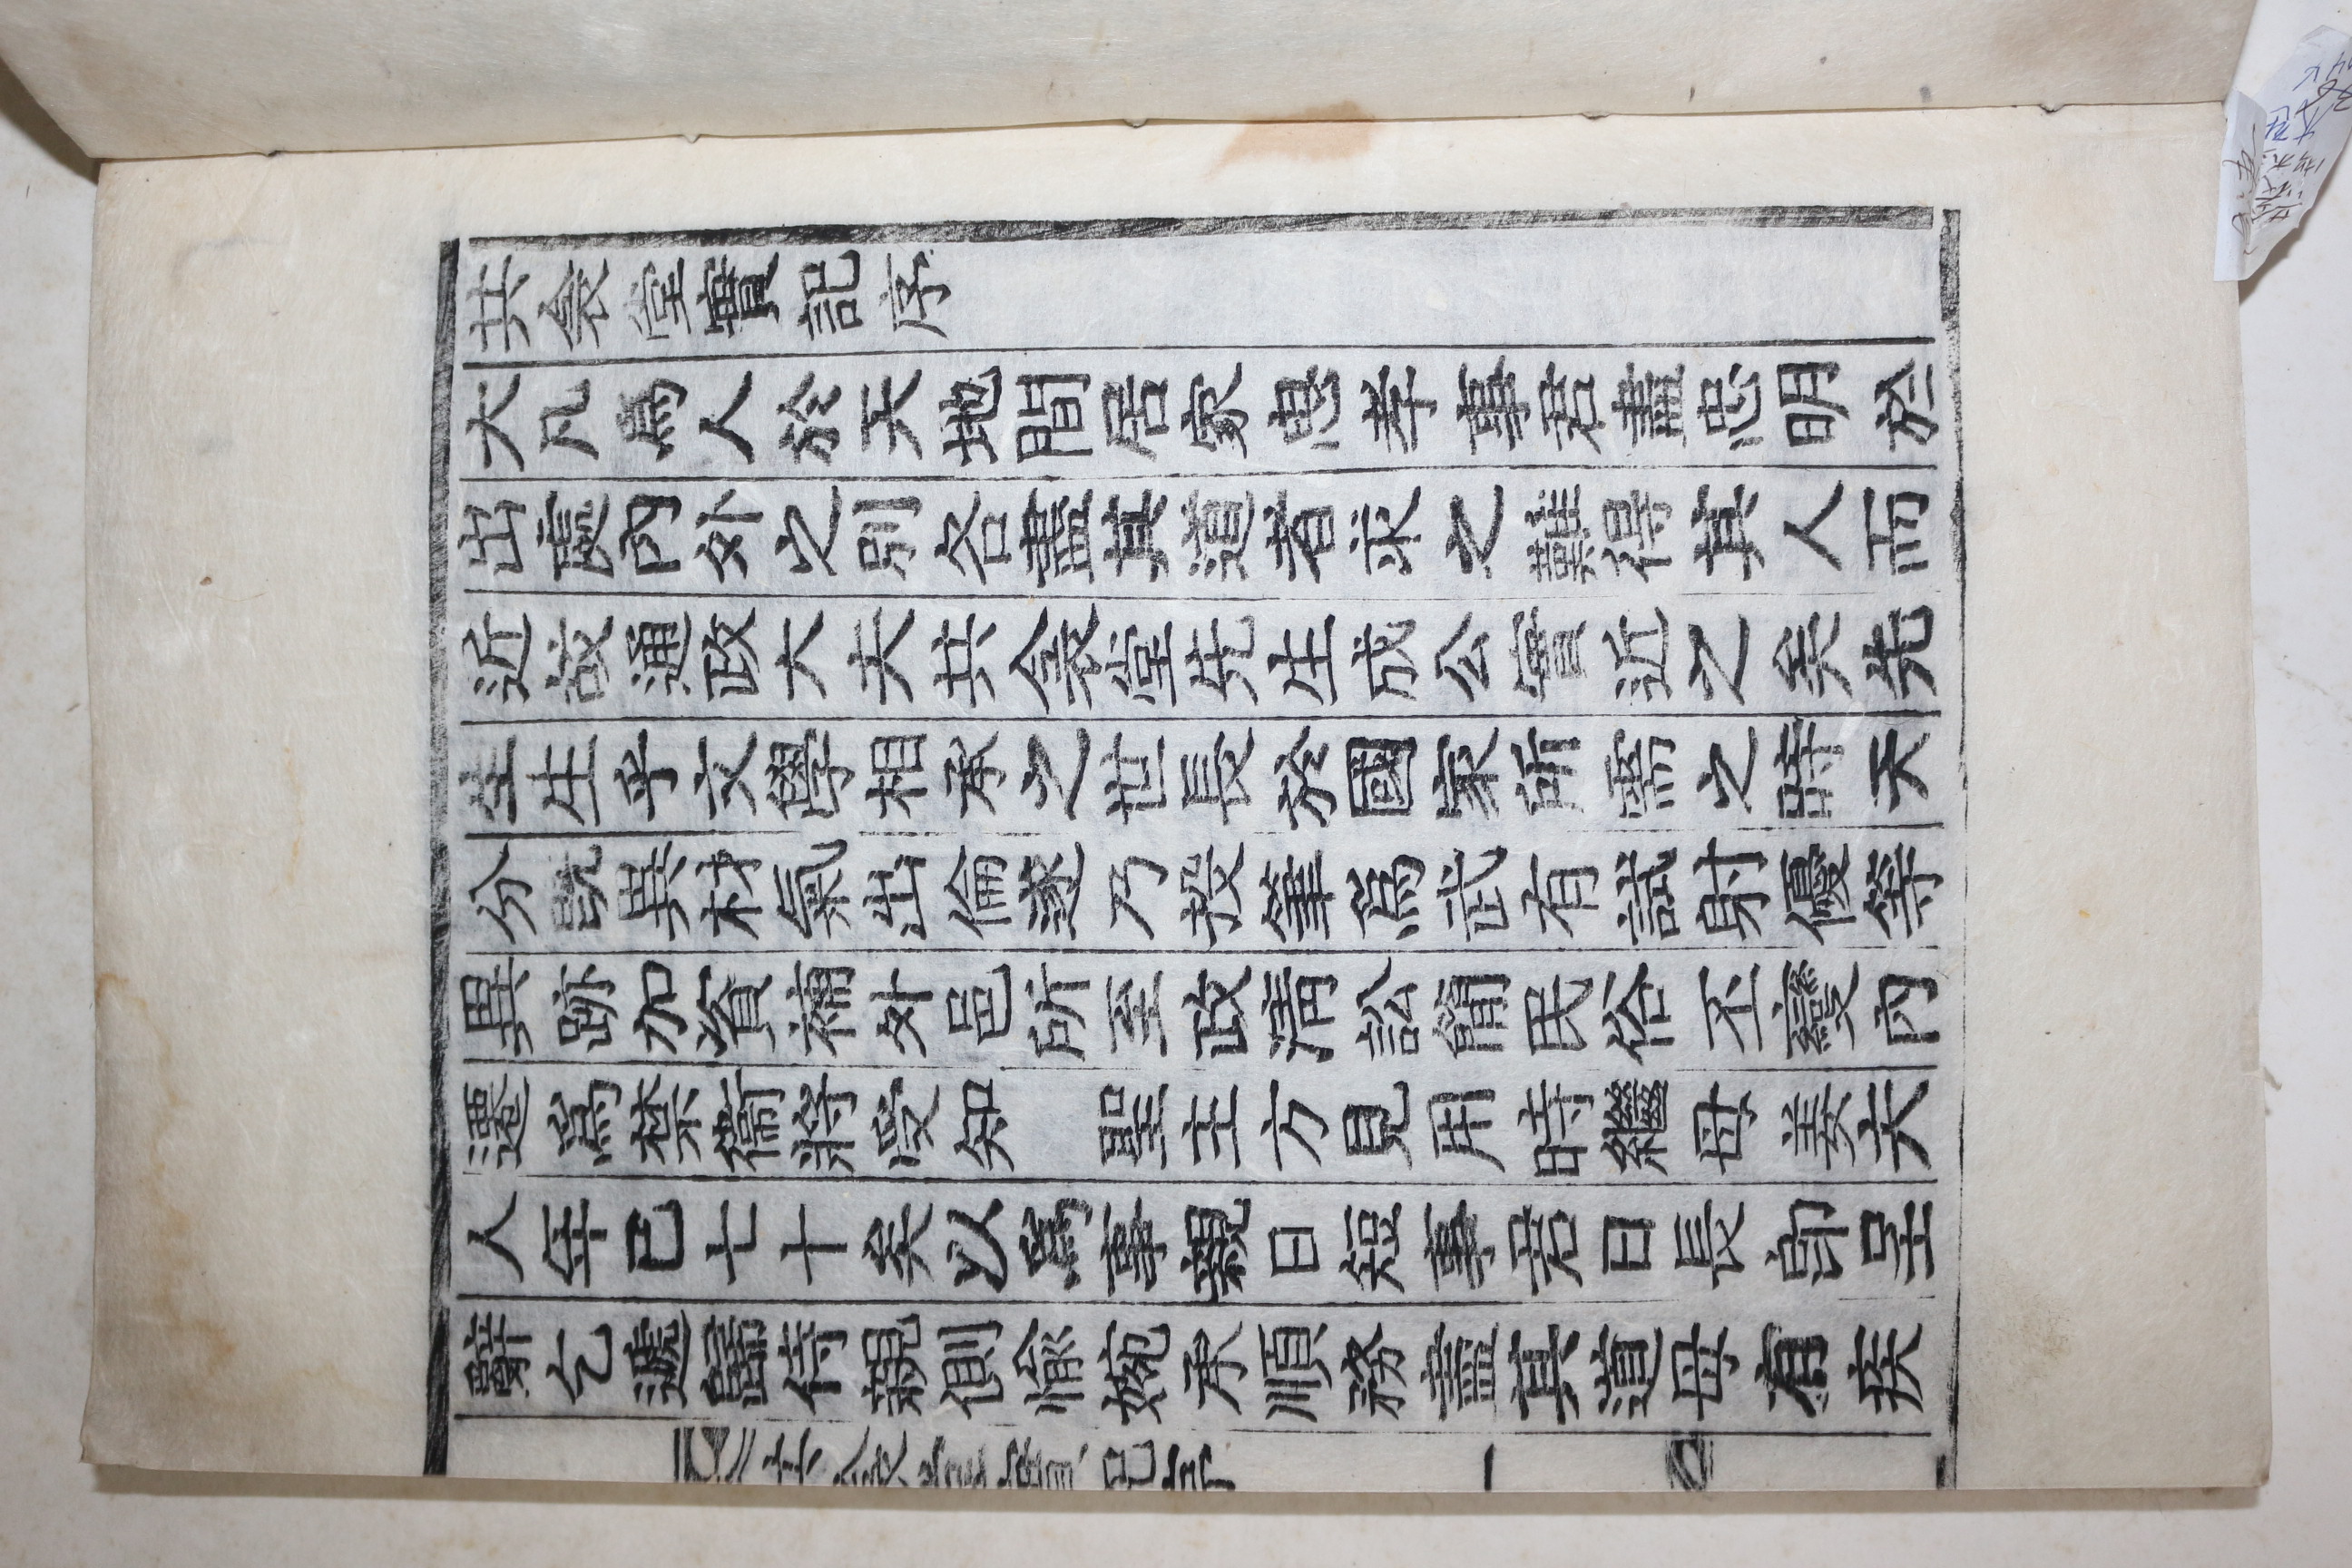 共衾堂實記序
大凡爲人於天地間居家忠孝事君盡忠明於
出處內外之別各盡其道者求之難得其人而
近故通政大夫共衾堂先生成公實近之矣先
生生乎文學相承之世長於國家所需之時天
分旣異材氣出倫遂乃投筆爲武有試射優等
異跡加資補外邑所至政淸訟簡民俗丕變內
遷爲禁衞將受知 聖主方見用時繼母姜夫
人年巳七十矣以爲事親日短事君日長卽呈
辭乞遞歸侍親側愉婉承順務盡其道母有疾
共衾堂實記序
一